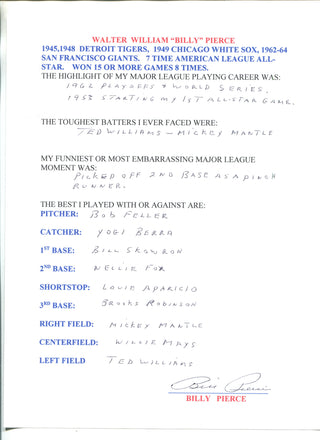 WALTER WILLIAM “BILLY” PIERCE
1945,1948 DETROIT TIGERS, 1949 CHICAGO WHITE SOX, 1962-64
SAN FRANCISCO GIANTS. 7 TIME AMERICAN LEAGUE ALL-
STAR. WON 15 OR MORE GAMES 8 TIMES.
THE HIGHLIGHT OF MY MAJOR LEAGUE PLAYING CAREER WAS:
1962 PLAYOFFS & WORLD SERIES.
1953 STARTING MY 1ST ALL-STAR GAME.
THE TOUGHEST BATTERS I EVER FACED WERE:
TED WILLIAMS - MICKEY MANTLE
MY FUNNIEST OR MOST EMBARRASSING MAJOR LEAGUE
MOMENT WAS:
PICKED OFF 2ND BASE AS A PINCH
RUNNER.
THE BEST I PLAYED WITH OR AGAINST ARE:
PITCHER: BOB FELLER
CATCHER: YOGI BERRA
1ST BASE: BILL SKOWRON
2ND BASE: NELLIE FOX
SHORTSTOP: LOUIE APARICIO
3RD BASE: BROOKS ROBINSON
RIGHT FIELD: MICKEY MANTLE
CENTERFIELD: WILLIE MAYS
LEFT FIELD TED WILLIAMS
Billy Pierce
BILLY PIERCE